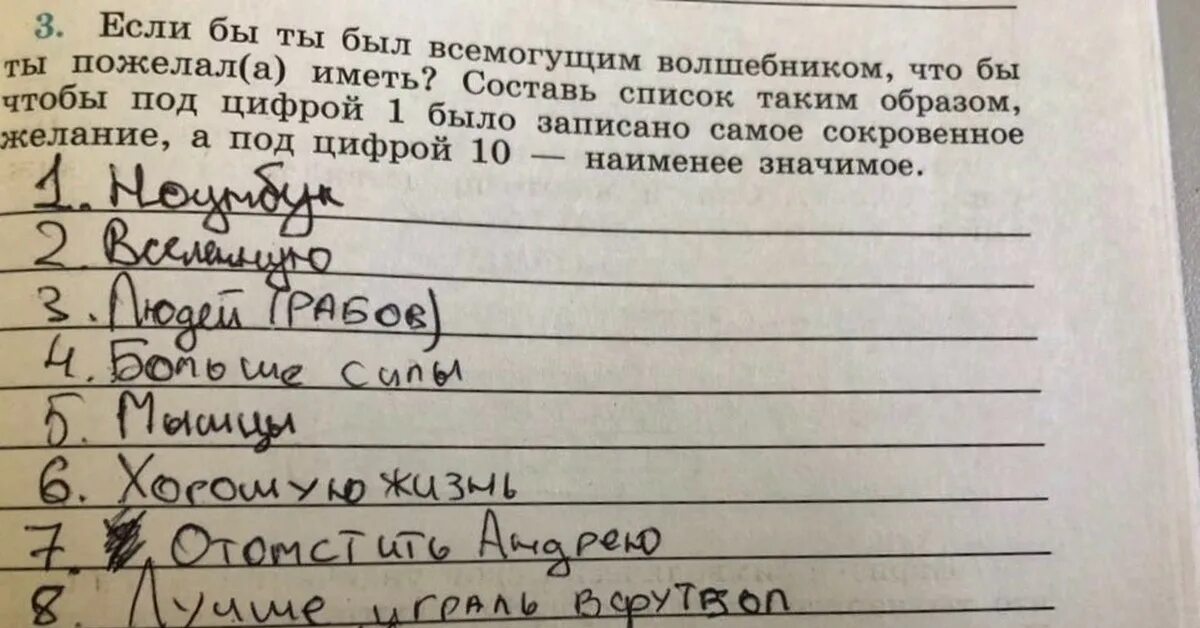 3. Если бы ты был всемогущим волшебником, что бы
ты пожелал(а) иметь? Составь список таким образом,
чтобы под цифрой 1 было записано самое сокровенное
желание, а под цифрой 10 — наименее значимое.
1. Ноутбук
2 Вселенную
3. Людей (РАБОВ)
4. Больше силы
5. Мышцы
6. Хорошую жизнь
7. Отомстить Андрею
8. Лучше играль вфутвол